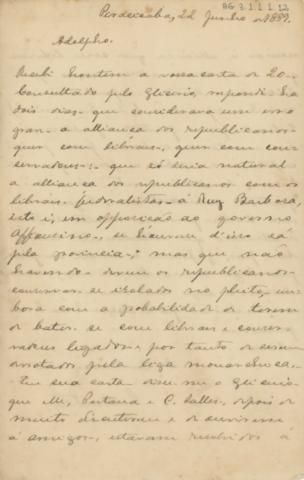 AG 3.1.1.1.12
Piracicaba, 22 Junho de 1889.
Adolpho.
Recebi hontem a vossa carta de 20.
Consultado pelo Glicerio, respondi ha
dois dias que considerava um erro
grave a alliança dos republicanos
quer com liberaes, quer com con-
servadores; que só seria natural
a alliança dos republicanos com os
liberaes federalistas á Ruy Barbosa,
isto é, em opposição ao governo
Affonsino, se houvesse disso cá
pela provincia; mas que não
havendo devem os republicanos
conservar-se isolados no pleito, em-
bora com a probabilidade de terem
de bater-se com liberaes e conser-
vadores ligados e por tanto de serem
derrotados pela liga monarchica.
Em sua carta disse-me o Glicerio
que elle, Pestana e C. Salles, depois de
muito discutirem e de ouvirem
a amigos, estavam resolvidos á